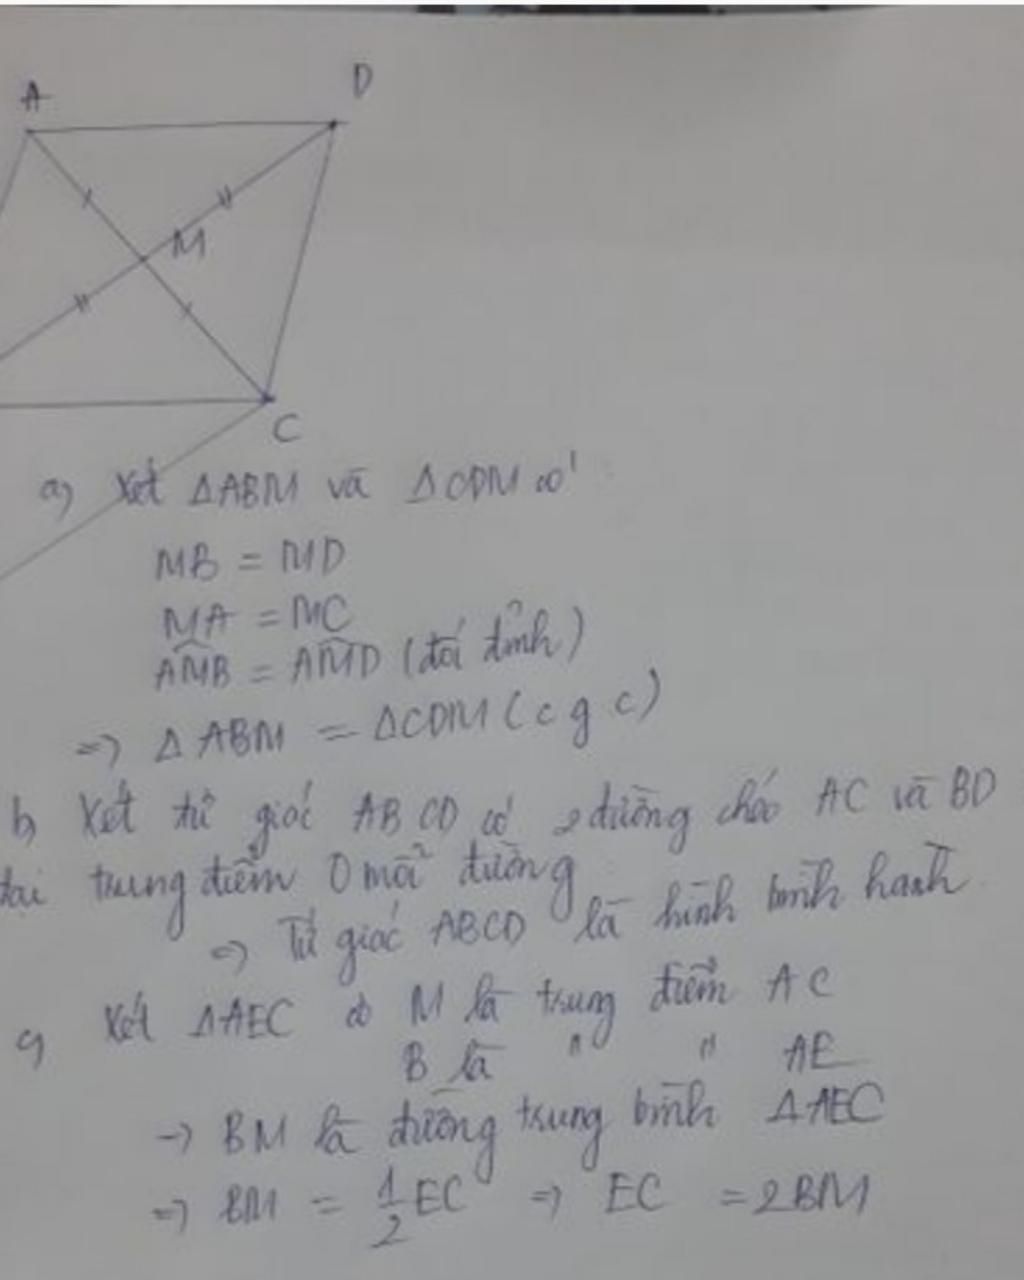 A
D
M
C
a) Xét ΔABM và ΔCDM có
MB = MD
MA = MC
\widehat{AMB} = \widehat{AMD} (đối đỉnh)
=> Δ ABM = ΔCDM (c g c)
b) Xét tứ giác ABCD có 2 đường chéo AC và BD
tại trung điểm O mỗi đường
=> Tứ giác ABCD là hình bình hành
c) Xét ΔAEC có M là trung điểm AC
B là " " AE
-> BM là đường trung bình ΔAEC
=> BM = \frac{1}{2}EC => EC = 2BM